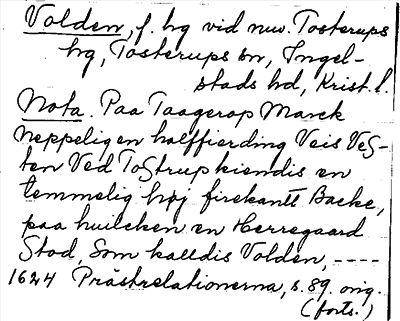 Volden, f. hg vid nuv. Tosterups
hg, Tosterups sn, Ingel-
stads hd, Krist. l.
Nota. Paa Taagerop Marck
neppeligen halffierding Veis VeS-
ten Ved ToStrup kiendis en
temmelig høj firekantt Backe,
paa huilcken en Herregaard
Stod, Som kalldis Volden, ----
1624 Prästrelationerna, s. 89. orig.
(forts.)